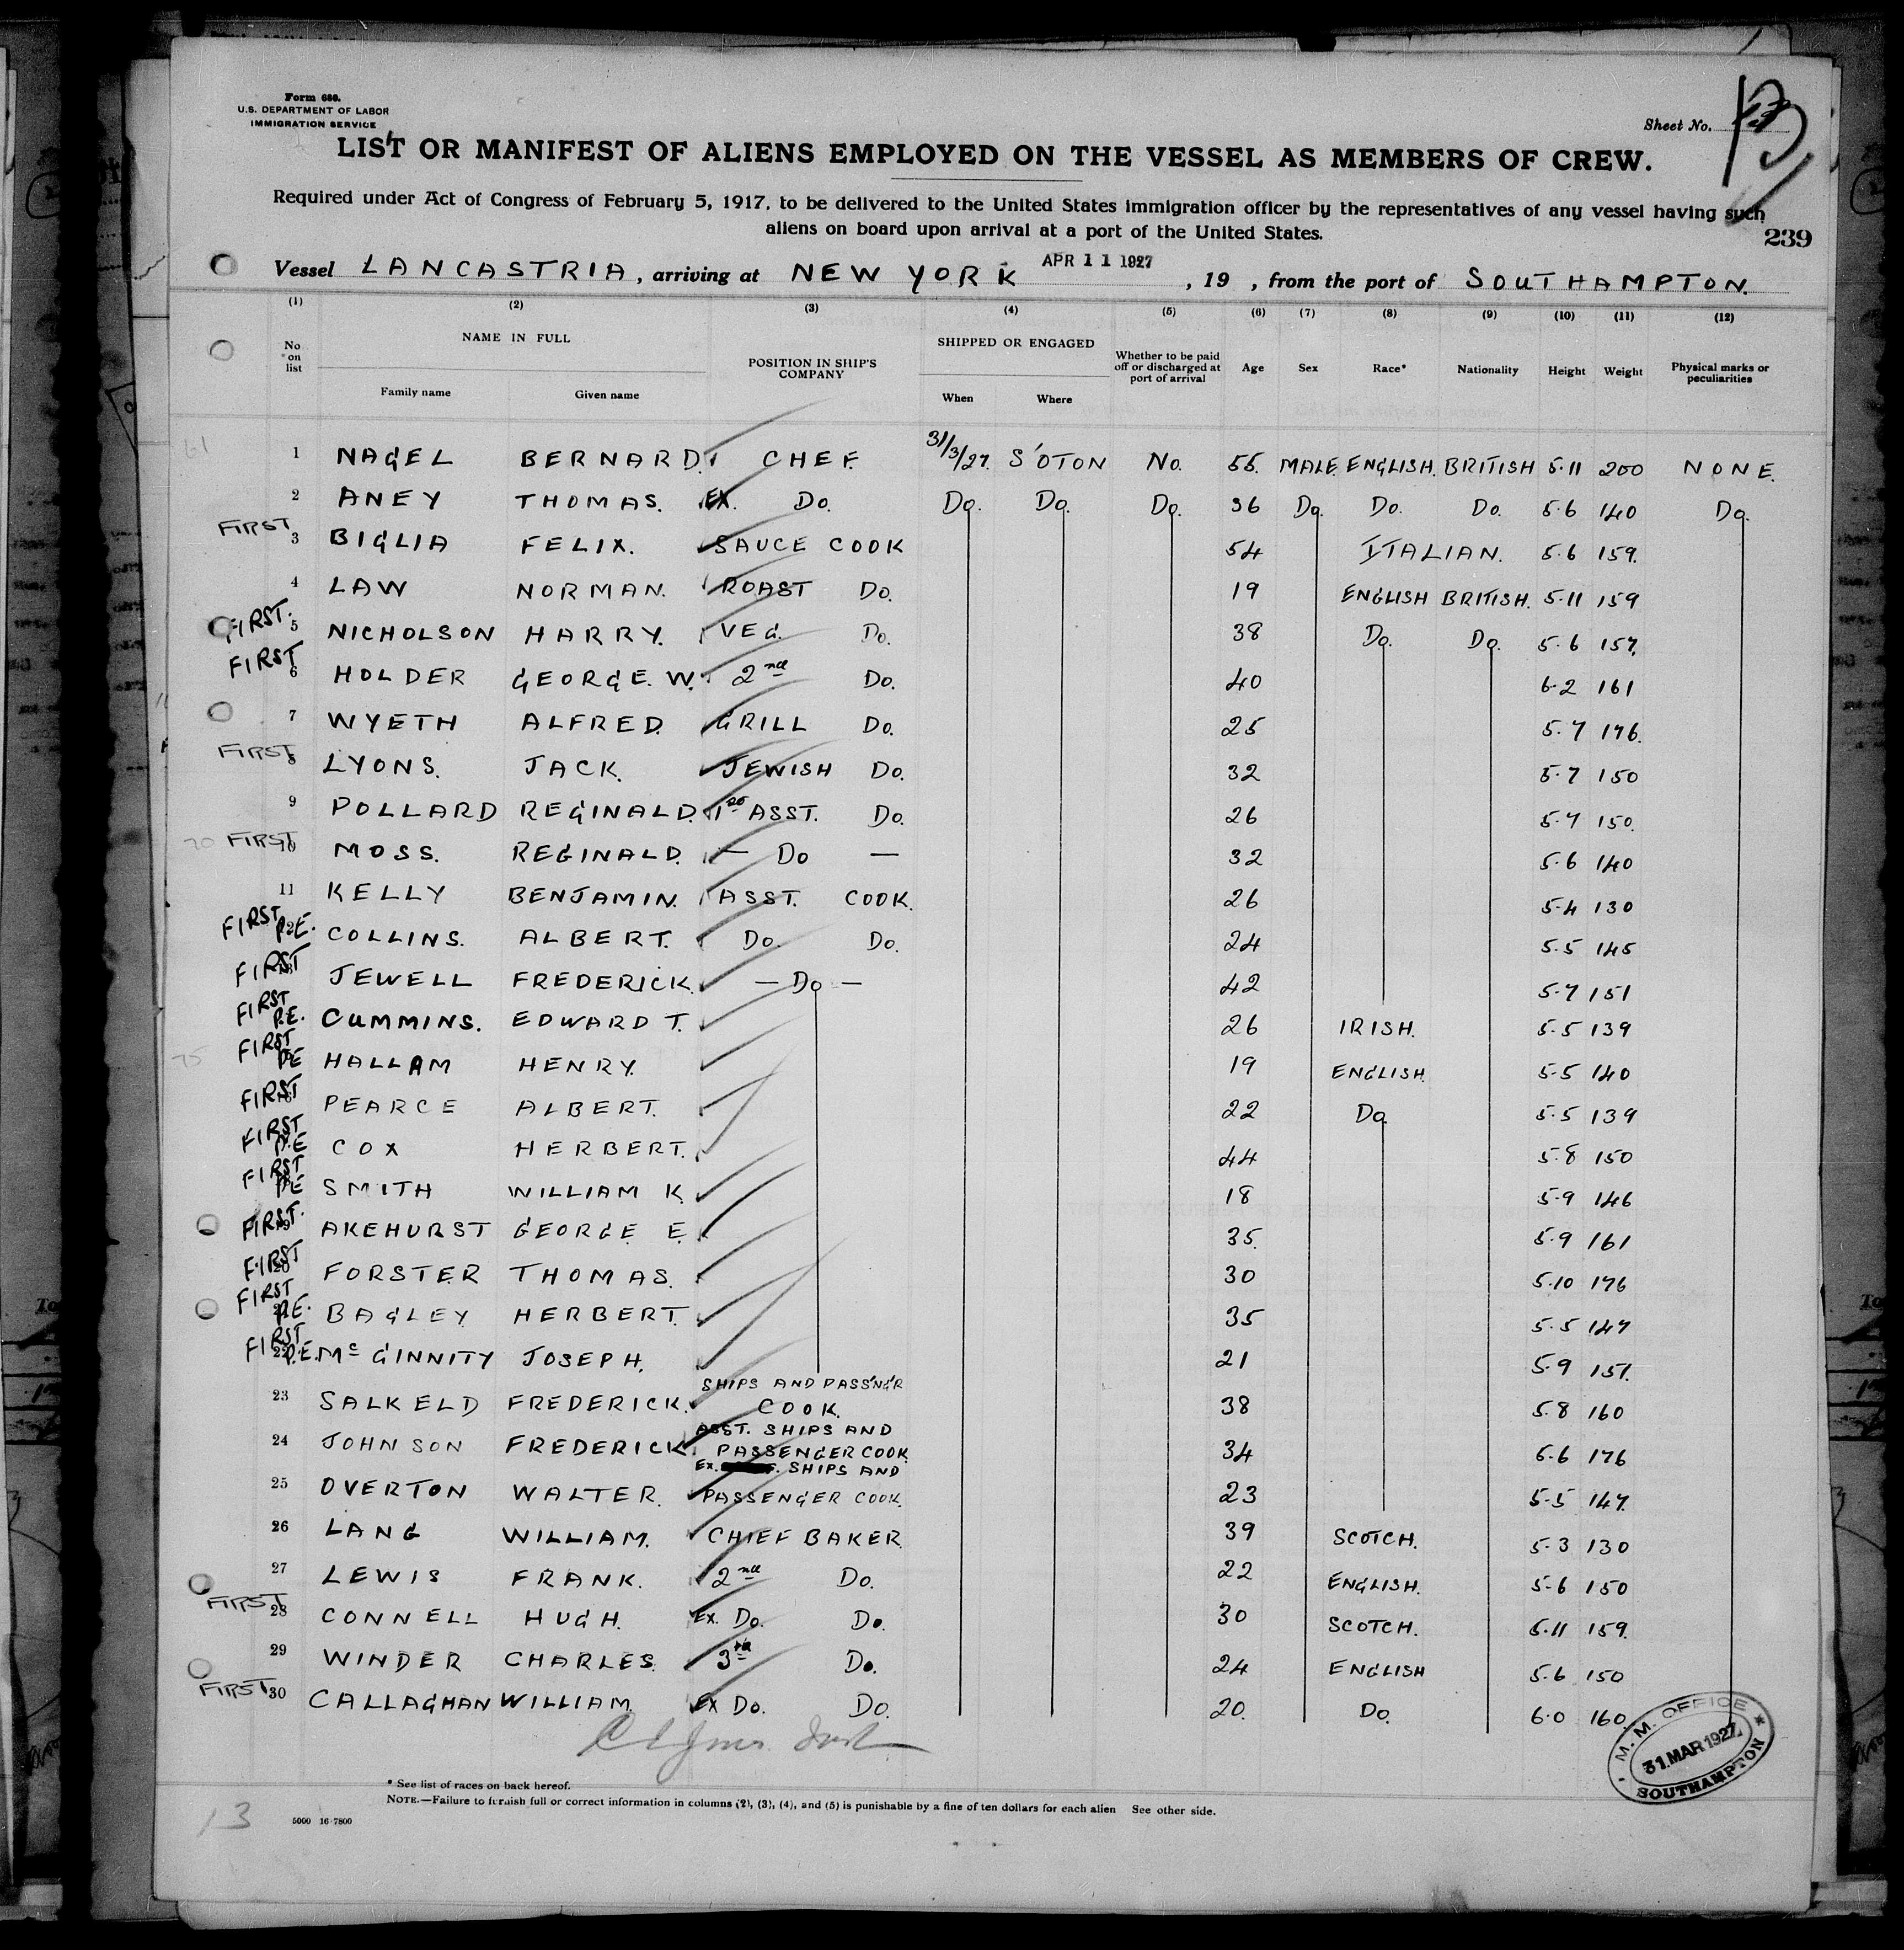 Form 680.
U.S. DEPARTMENT OF LABOR
IMMIGRATION SERVICE
Sheet No.
LIST OR MANIFEST OF ALIENS EMPLOYED ON THE VESSEL AS MEMBERS OF CREW.
Required under Act of Congress of February 5, 1917, to be delivered to the United States immigration officer by the representatives of any vessel having such
aliens on board upon arrival at a port of the United States.
239
Vessel LANCASTRIA, arriving at NEW YORK APR 11 1927, 19 , from the port of SOUTHAMPTON.
(1) (2) (3) (4) (5) (6) (7) (8) (9) (10) (11) (12)
No on list NAME IN FULL Family name Given name POSITION IN SHIP'S COMPANY SHIPPED OR ENGAGED When Where Whether to be paid off or discharged at port of arrival Age Sex Race* Nationality Height Weight Physical marks or peculiarities
61 1 NAGEL BERNARD. CHEF. 31/3/27. S'OTON No. 55. MALE. ENGLISH. BRITISH 5.11 200 NONE.
2 ANEY THOMAS. EX. Do. Do. Do. Do. 36 Do. Do. Do. 5.6 140 Do.
FIRST 3 BIGLIA FELIX. SAUCE COOK 54 ITALIAN. 5.6 159.
4 LAW NORMAN. ROAST Do. 19 ENGLISH BRITISH. 5.11 159
FIRST. 5 NICHOLSON HARRY. VEG. Do. 38 Do. Do. 5.6 157.
FIRST 6 HOLDER GEORGE. W. 2nd Do. 40 6.2 161
7 WYETH ALFRED. GRILL Do. 25 5.7 176.
FIRST 8 LYONS. JACK. JEWISH Do. 32 5.7 150
9 POLLARD REGINALD. 1st ASST. Do. 26 5.7 150.
70 FIRST 10 MOSS. REGINALD. — Do — 32 5.6 140
11 KELLY BENJAMIN. ASST. COOK. 26 5.4 130
FIRST P.E. 12 COLLINS. ALBERT. Do. Do. 24 5.5 145
FIRST 13 JEWELL FREDERICK. — Do — 42 5.7 151
FIRST P.E. CUMMINS. EDWARD T. 26 IRISH. 5.5 139
75 FIRST PE HALLAM HENRY. 19 ENGLISH. 5.5 140
FIRST 16 PEARCE ALBERT. 22 Do. 5.5 139
FIRST P.E COX HERBERT. 44 5.8 150
FIRST PE SMITH WILLIAM K. 18 5.9 146
FIRST. 19 AKEHURST GEORGE E. 35. 5.9 161
FIRST 20 FORSTER THOMAS. 30 5.10 176
FIRST P.E. 21 BAGLEY HERBERT. 35 5.5 147
FIRST P.E. 22 McGINNITY JOSEPH. 21 5.9 151.
23 SALKELD FREDERICK. SHIPS AND PASS'NG'R COOK. 38 5.8 160
24 JOHNSON FREDERICK. ASST. SHIPS AND PASSENGER COOK. 34 5.6 176
25 OVERTON WALTER. Ex. SHIPS AND PASSENGER COOK. 23 5.5 147.
26 LANG WILLIAM. CHIEF BAKER. 39 SCOTCH. 5.3 130
27 LEWIS FRANK. 2nd Do. 22 ENGLISH. 5.6 150
FIRST 28 CONNELL HUGH. Ex. Do. Do. 30 SCOTCH. 5.11 159.
29 WINDER CHARLES. 3rd Do. 24 ENGLISH 5.6 150
FIRST 30 CALLAGHAN WILLIAM. Ex Do. Do. 20. Do. 6.0 160.
M. M. OFFICE
31 MAR 1927
SOUTHAMPTON
* See list of races on back hereof.
NOTE.—Failure to furnish full or correct information in columns (2), (3), (4), and (5) is punishable by a fine of ten dollars for each alien See other side.
13
5000 16-7800